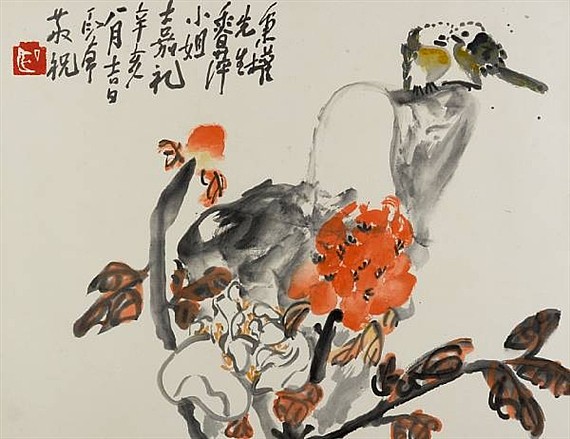 秉權
先生
香萍
小姐
嘉礼
辛亥
八月吉日
丁衍庸
敬祝